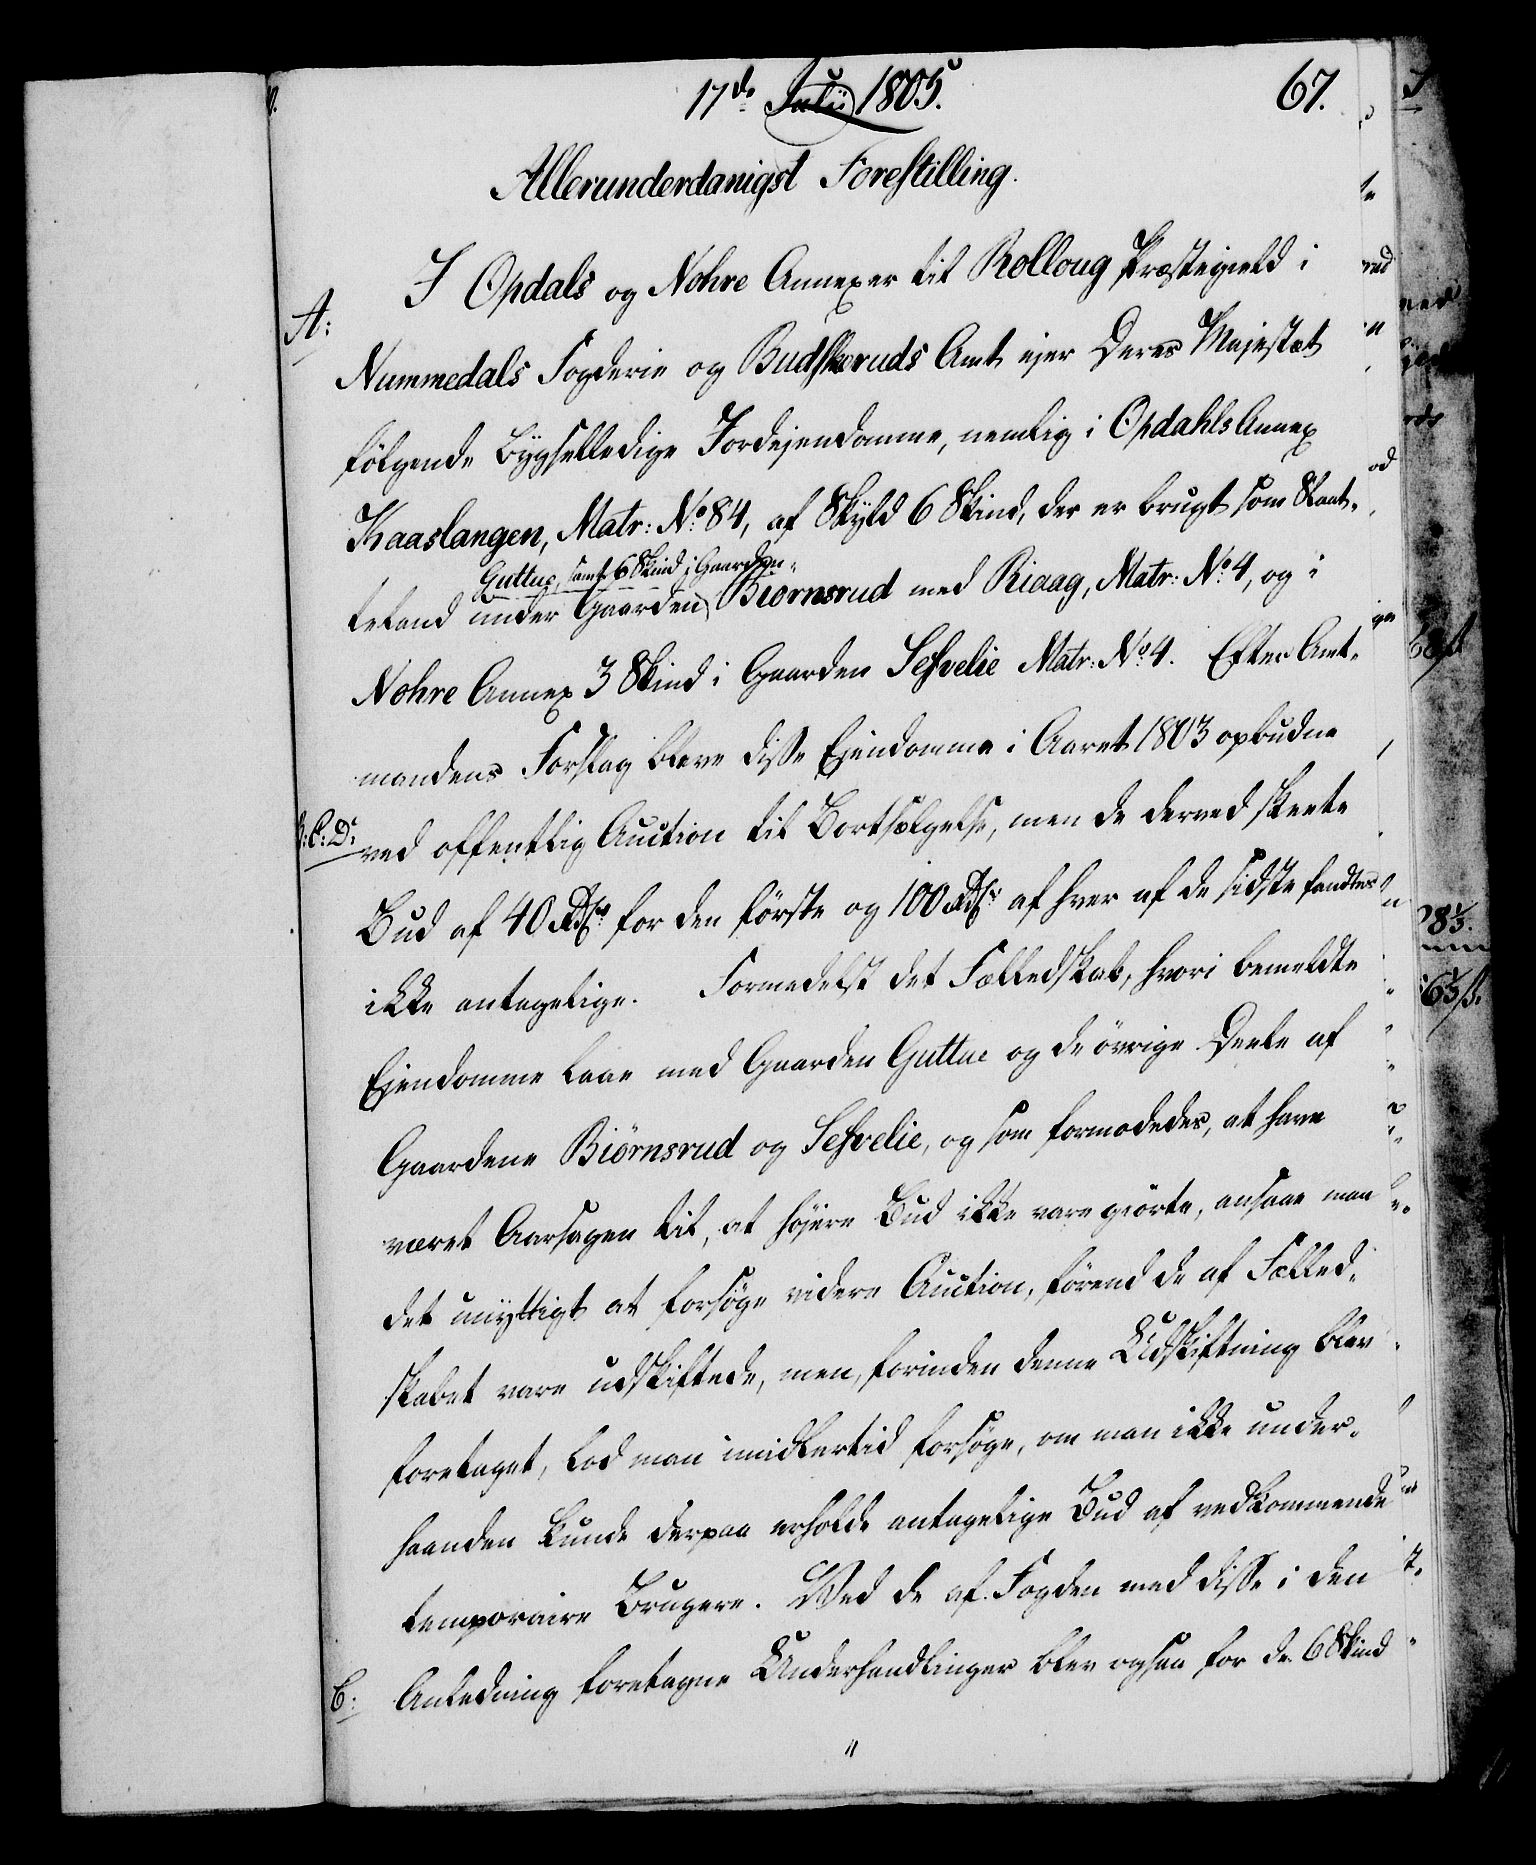 17de Julii 1805.
67.
Allerunderdanigst Forestilling.
I Opdals og Nohre Annexer til Rolloug Præstegield i
A:
Nummedals Fogderie og Budskeruds Amt ejer Deres Majestæt
følgende bygselledige Jordejendomme, nemlig i Opdahls Annex
Kaaslangen, Matr: No 84, af Skyld 6 Skind, der er brugt som Staat-
Guttue, samt 6 Skind i Gaarden
teland under Gaarden Biørnsrud med Riaag, Matr: No 4, og i
Nohre Annex 3 Skind i Gaarden Sesvelie Matr: No 4. Efter Amt-
mandens Forslag bleve disse Ejendomme i Aaret 1803 opbudne
B: C: D:
ved offentlig Auction til Bortsælgelse, men de derved skeete
Bud af 40 Rdr for den første og 100 Rdr af hver af de sidste fandtes
ikke antagelige. Formedelst det Fælledskab, hvori bemeldte
Ejendomme laae med Gaarden Guttue og de øvrige Deele af
Gaardene Biørnsrud og Sesvelie, og som formodedes, at have
været Aarsagen til, at højere Bud ikke vare giørte, ansaae man
det unyttigt at forsøge videre Auction, førend de af Fælled-
skabet vare udskiftede, men, forinden denne Udskiftning blev
foretaget, lod man imidlertid forsøge, om man ikke under-
haanden kunde derpaa erholde antagelige Bud af vedkommende
temporaire Brugere. Ved de af Fogden med disse i den
E:
Anledning foretagne Underhandlinger blev ogsaa for de 6 Skind